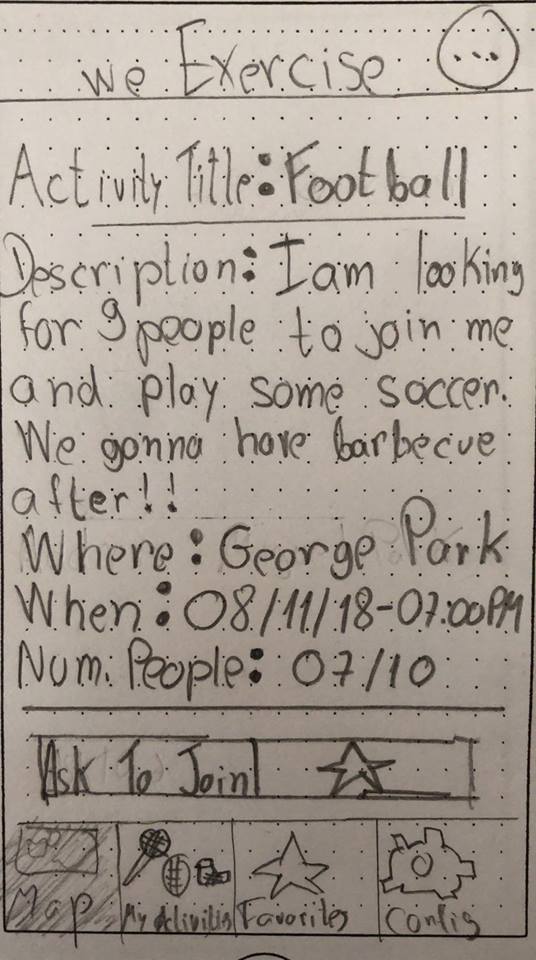 we Exercise
Activity Title: Football
Description: I am looking
for 9 people to join me
and play some soccer.
We gonna have barbecue
after!!
Where: George Park
When: 08/11/18-07:00PM
Num. People: 07/10
Ask To Join!
Map
My Activities
Favorites
Config